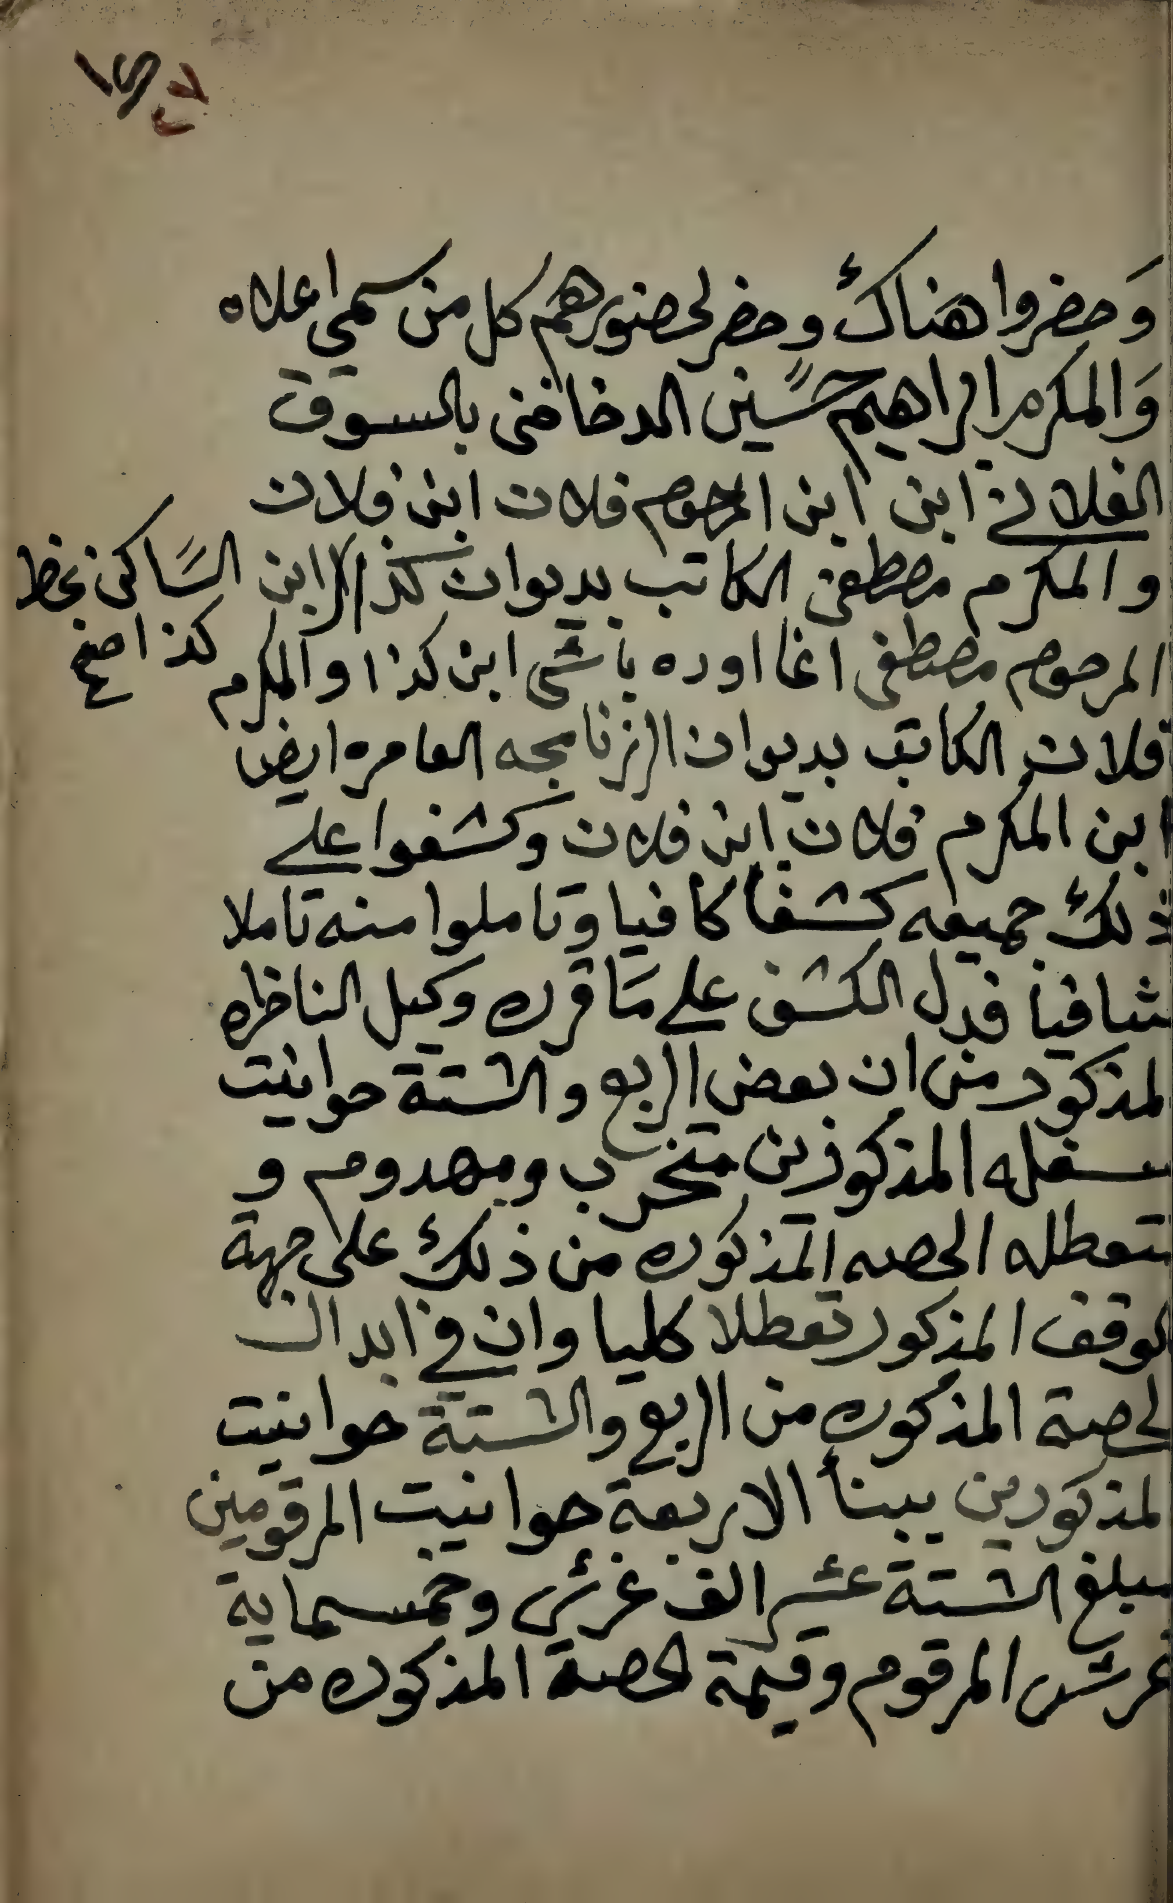 وَحضروا هناك وحضر لحضورهم كل من سمي اعلاه
وَالمكرم ابراهيم حسين الدخاخنى بالسوق
الفلاني ابن ابن المرحوم فلان ابن فلان
والمكرم مصطفى الكاتب بديوان كذا ابن الساكن بخط
كذا اصح
المرحوم مصطفى اغا اوده باشى ابن كذا والمكرم
فلان الكاتب بديوان الرزنامجه العامره ايضا
ابن المكرم فلان ابن فلان وكشفوا علے
ذلك جميعه كشفا كافيا وتاملوا منه تاملا
شافيا فدل الكشف علے مَا قرره وكيل الناظره
المذكور من ان بعض الربع والستة حوانيت
سفله المذكورين متخرب ومهدوم و
تعطله الحصه المذكوره من ذلك على جهة
الوقف المذكور تعطلا كليا وان في ابدال
الحصة المذكوره من الربع والستة حوانيت
المذكورين ببنأ الاربعة حوانيت المرقومين
بمبلغ الستة عشر الف غرش وخمسماية
غرش المرقوم وقيمة الحصة المذكوره من